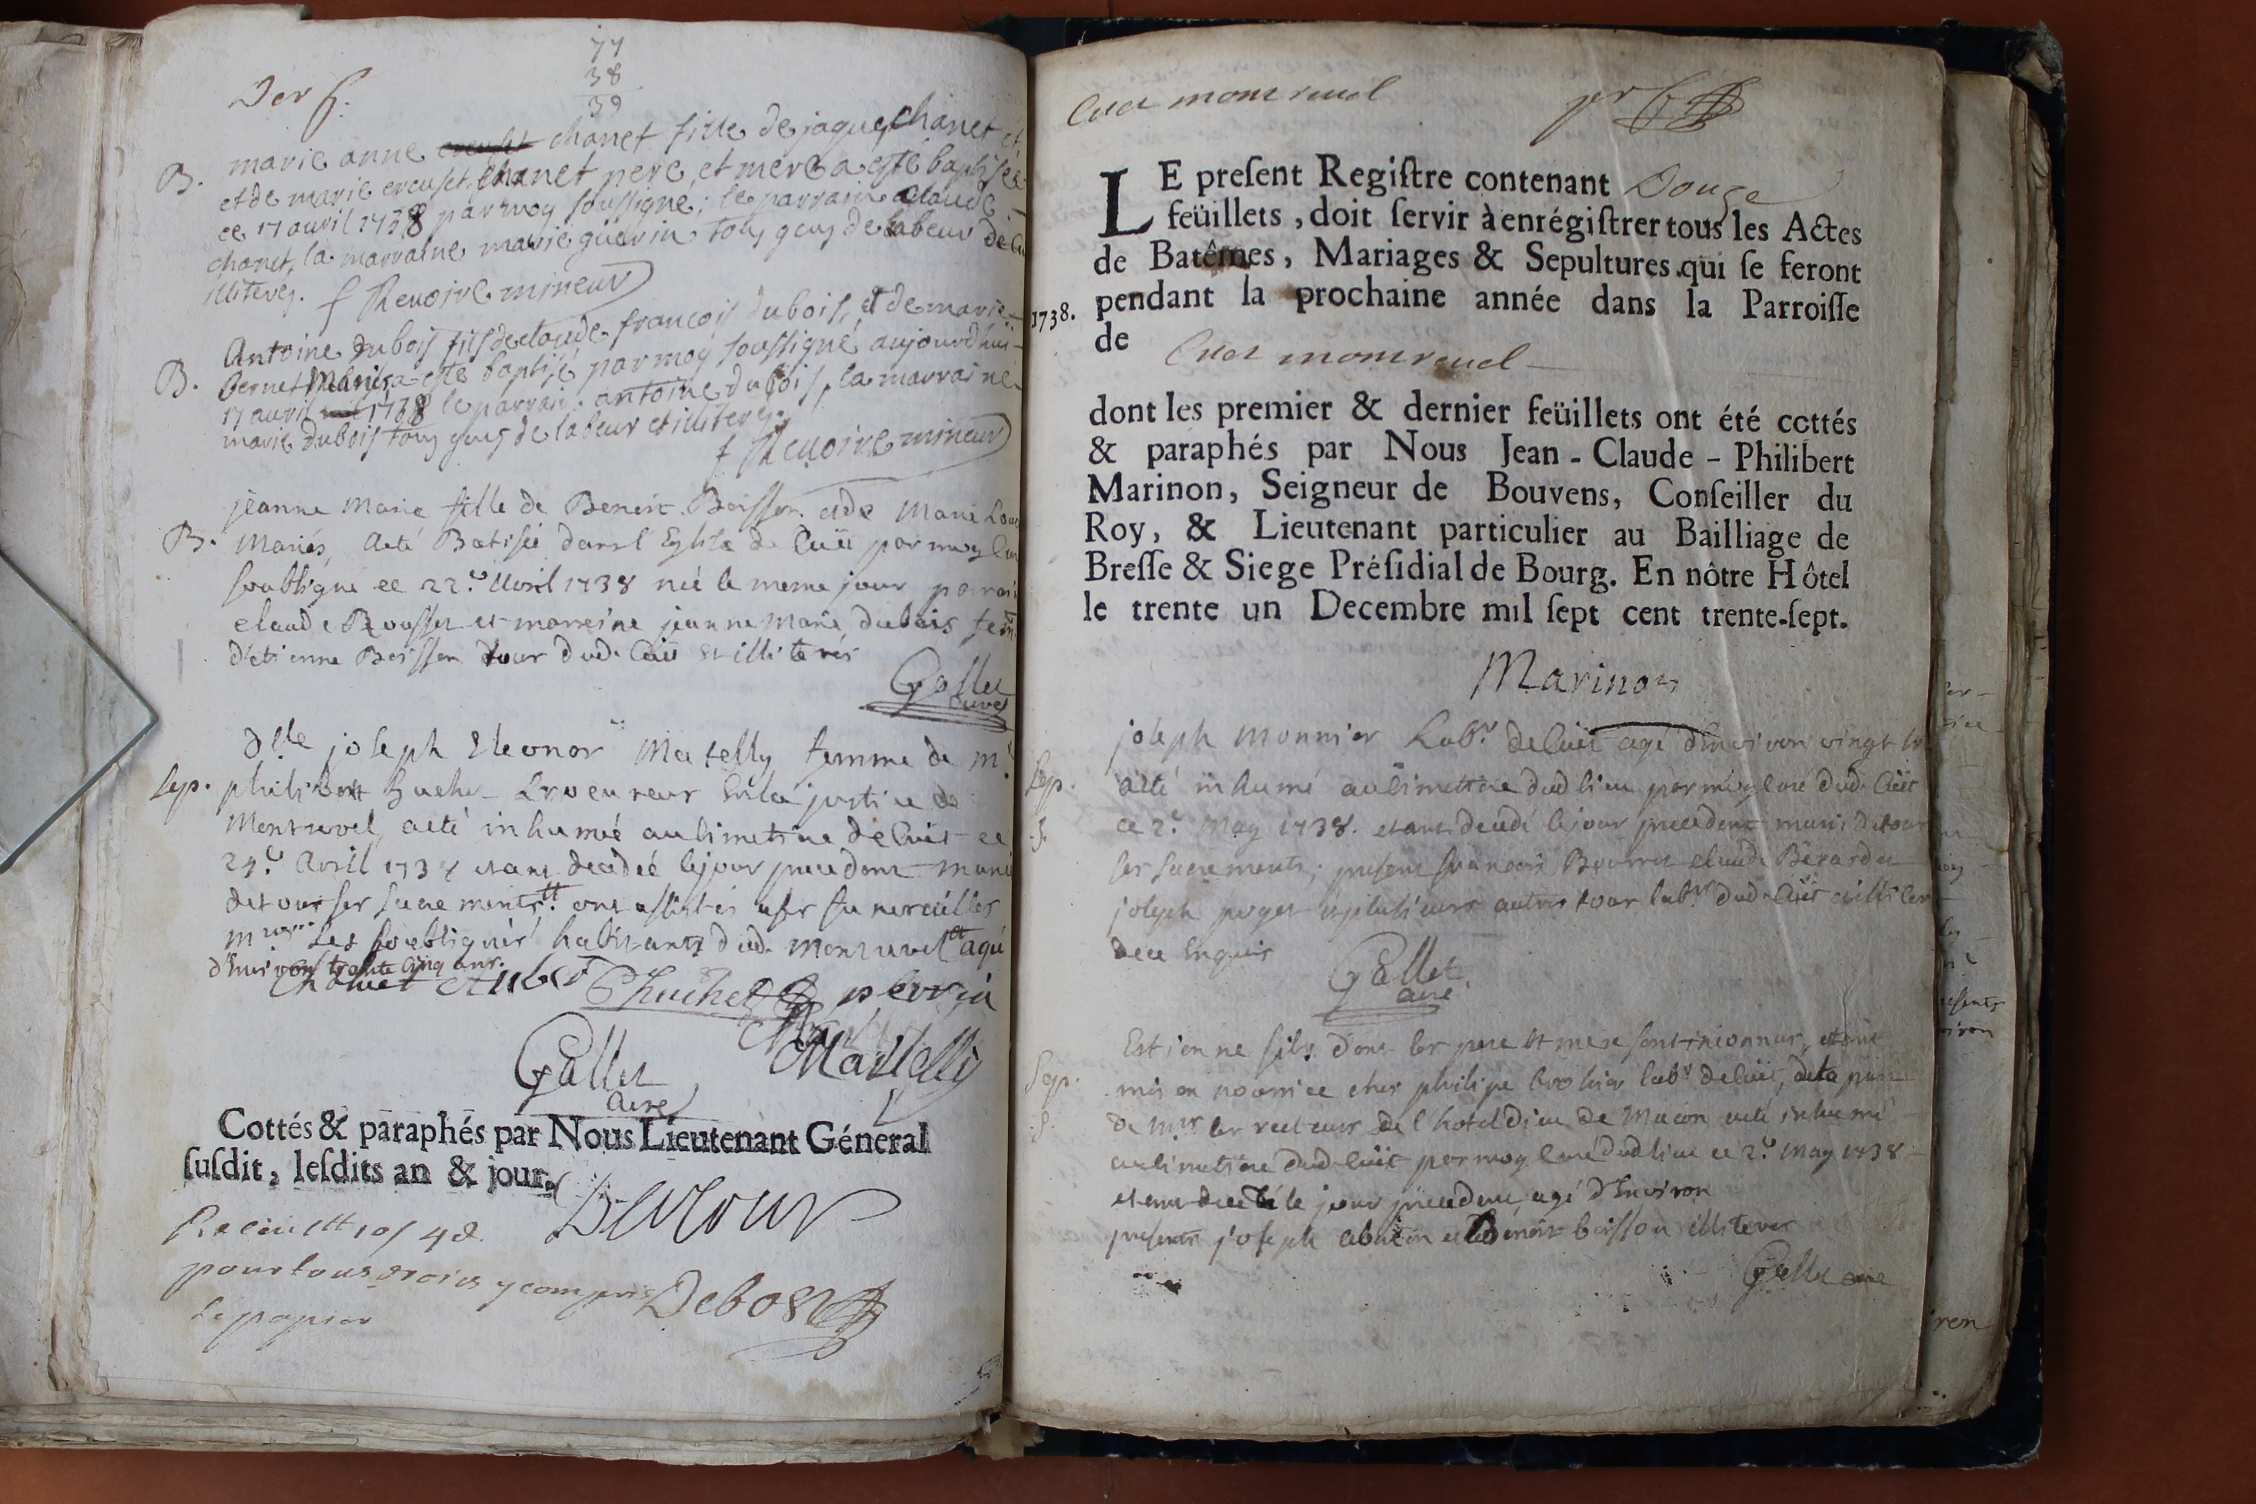 77
38
39
Der f.
B. marie anne chanet fille de jaque chanet et
et de marie creuset chanet pere et mere a esté baptisée
ce 17 avril 1738 par moy soussigné; le parrain claude
chanet, la marraine marie guerin tous gens de labeur de
illiterés. f Revoire mineur
Antoine dubois fils de claude françois dubois, et de marie
B. Bernet Mariés a esté baptisé par moy soussigné aujourd'huï
17 avril 1738 le parrain antoine dubois, la marraine
marie dubois tous gens de labeur et illiterés.
f Revoire mineur
jeanne Marie fille de Benoit Boisson et de Marie
B. Mariés, a eté Batisée dans l'Eglise de Cuët par moy
soubsigné ce 22.e Avril 1738 née le meme jour parrain
claude Rousset et marreine jeanne Marie dubois
d'etienne Boisson tous dud. Cuët et illiterés
Gallet
curé
Dlle joseph Eleonor Martelly femme de Mr
Sep. philibert Huchet Procureur En la justice de
Montrevel, a eté inhumée au Cimetiere de Cuët ce
avril 173 etant decedée le jour precedent munie
de tous ser sacrements ont assistés a ser funerailles
les soubsignés habitants dud. Montrevel et agée
d'Environ trente cinq ans.
Huchet
Martelly
Gallet
curé
Cottés & paraphés par Nous Lieutenant Géneral
susdit, lesdits an & jour.
Receu
pour tous droits y compris
le papier
Debost
Cuet montrevel
LE present Registre contenant Douze
feüillets, doit servir à enrégistrer tous les Actes
de Batêmes, Mariages & Sepultures qui se feront
1738. pendant la prochaine année dans la Parroisse
de Cuet montrevel
dont les premier & dernier feüillets ont été cottés
& paraphés par Nous Jean - Claude - Philibert
Marinon, Seigneur de Bouvens, Conseiller du
Roy, & Lieutenant particulier au Bailliage de
Bresse & Siege Présidial de Bourg. En nôtre Hôtel
le trente un Decembre mil sept cent trente-sept.
Marinon
joseph Monnier Labr. de Cuët agé d'Environ vingt
Sep. a eté inhumé au Cimetiere dud lieu par moy Curé dud. Cuët
ce 2.e May 1738. etant decedé le jour precedent muni de tous
ser sacrements; present françois Bourret claude Berardet
joseph puget et plusieurs autres tous labr. dud. Cuët et illiterés
de ce Enquis
Gallet
curé
Estienne fils d'ont les pere et mere sont inconnus, etant
Sep. mis en nourrice chez philipe labr de Cuët, de la part
de Mrs les recteurs de l'hotel Dieu de Macon a eté inhumé
au Cimetiere dud. Cuët par moy Curé dud lieu ce 2.e May 1738
etant decedé le jour precedent agé d'Environ
presents joseph et Benoit boisson illiterés
Gallet curé